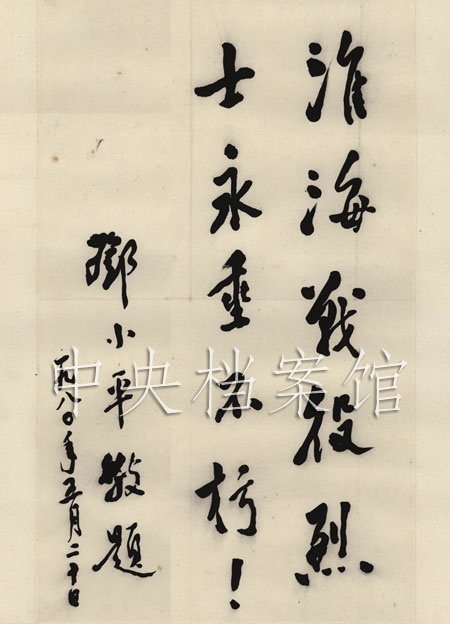 淮海戰役烈
士永垂不朽！
鄧小平敬題
一九八〇年五月二十日
中央档案馆